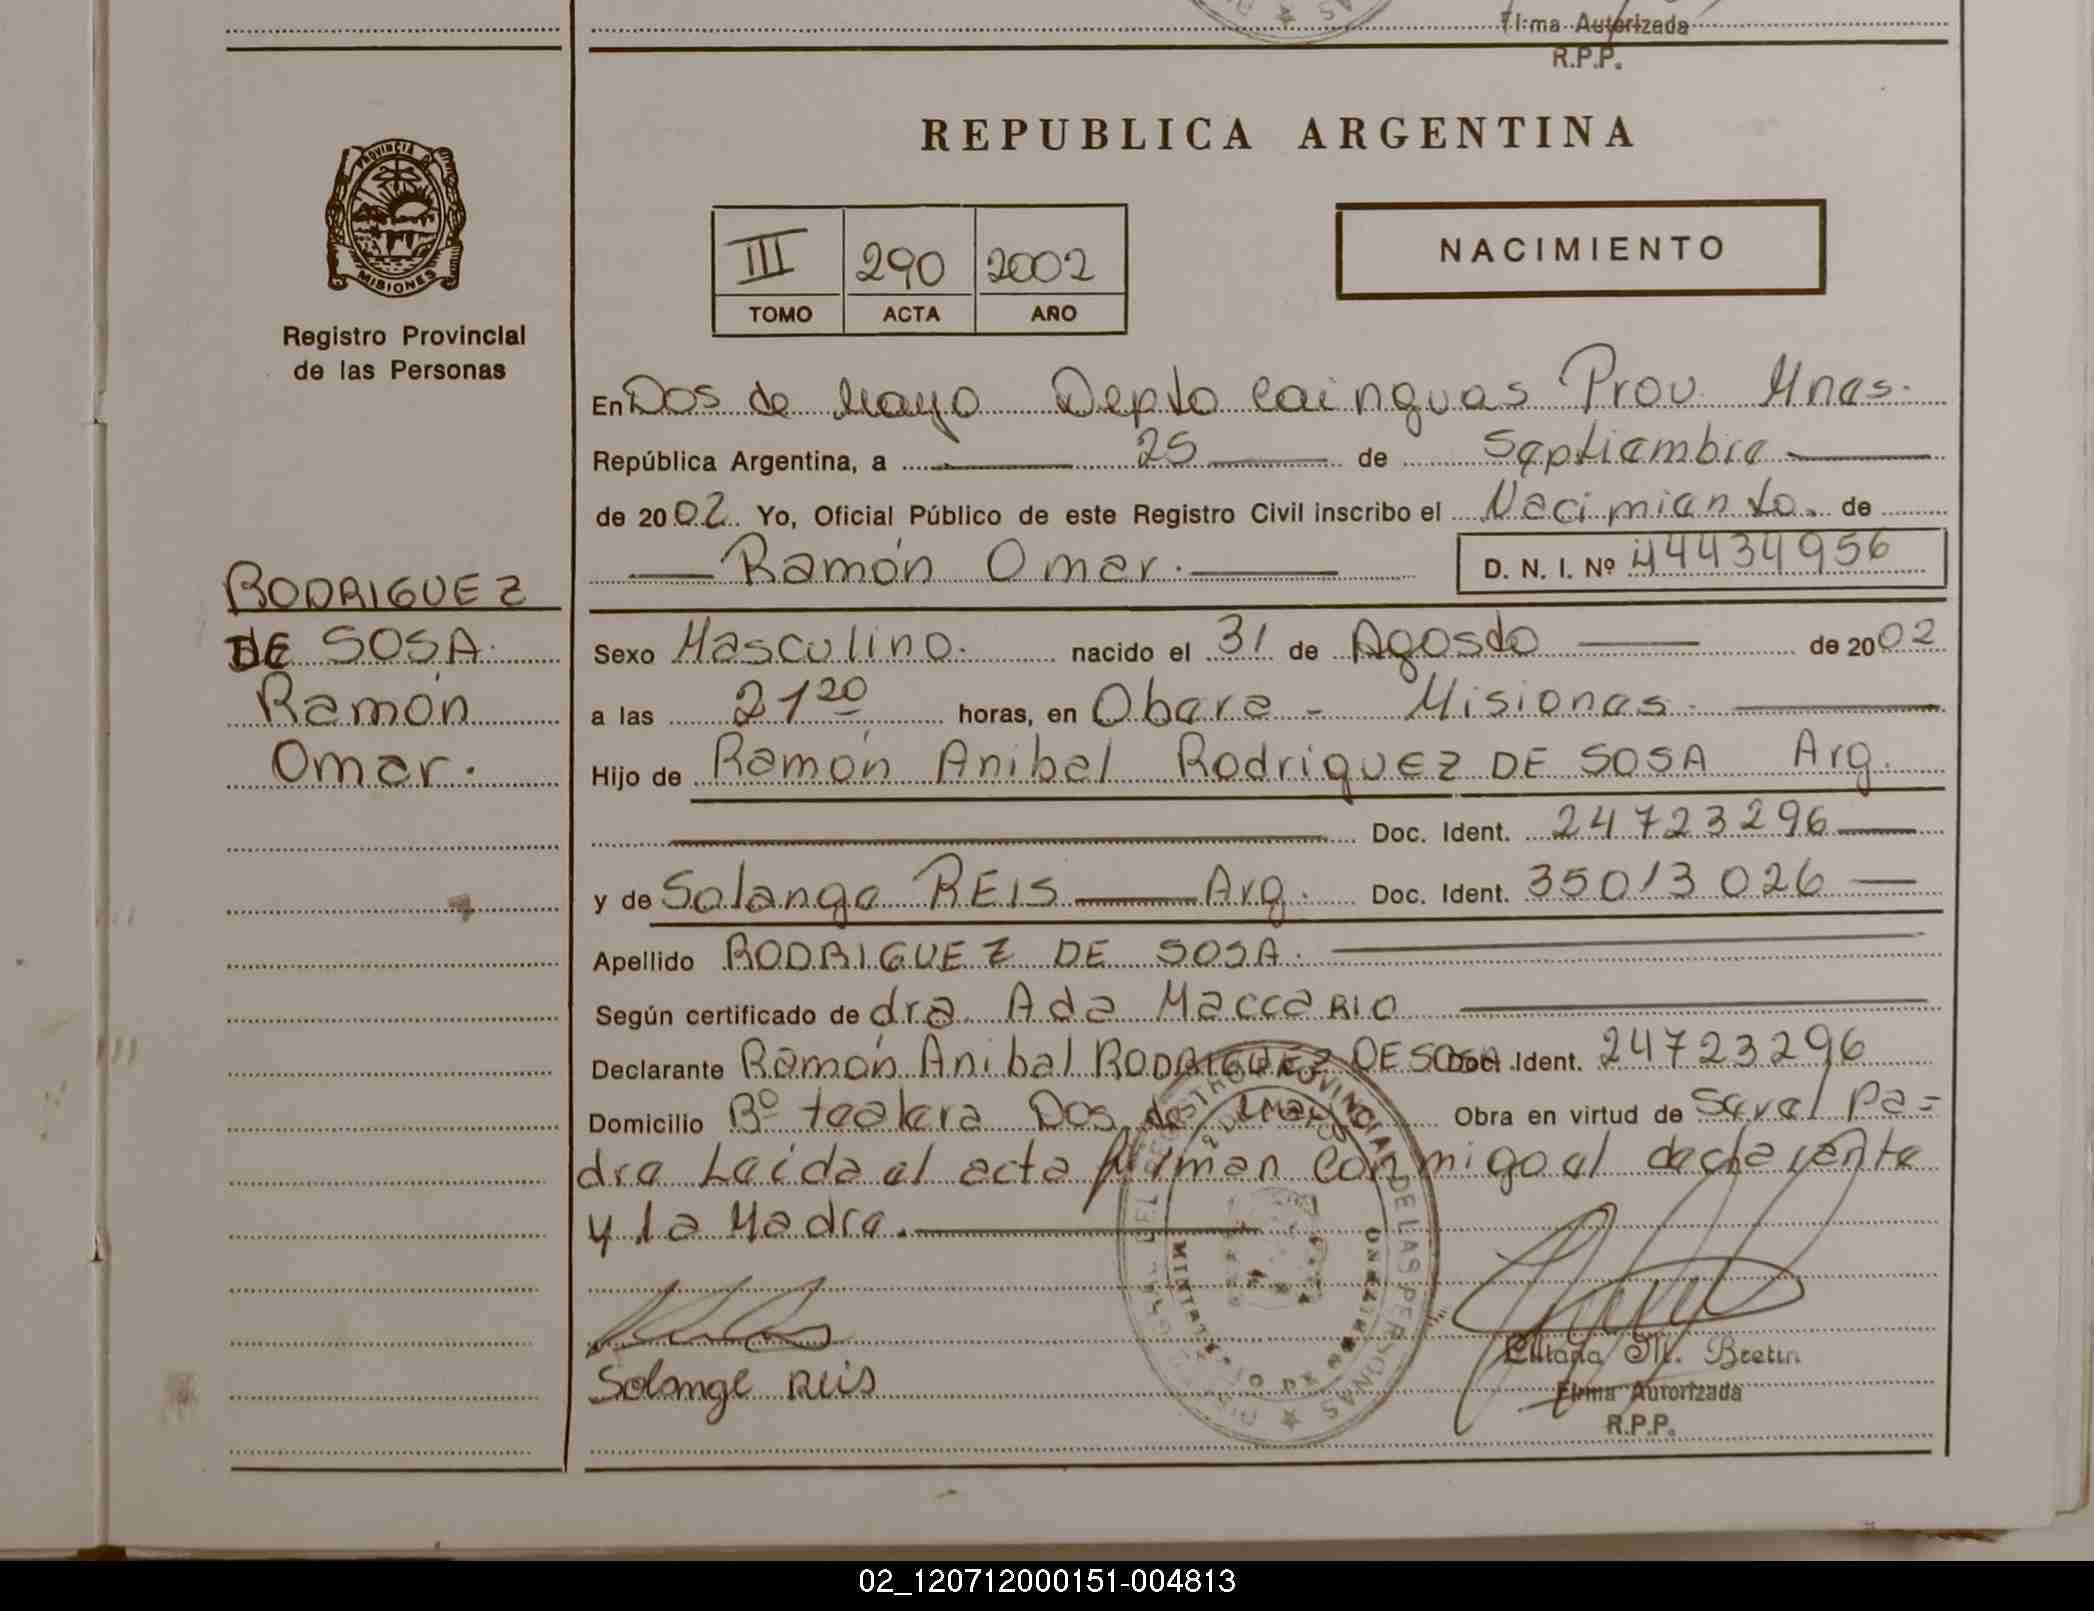 Firma Autorizada
R.P.P.
REPUBLICA ARGENTINA
PROVINCIA DE
MISIONES
Registro Provincial
de las Personas
III 290 2002
TOMO ACTA AÑO
NACIMIENTO
En Dos de Mayo Depto Cainguas Prov. Mnes.
República Argentina, a 25 de Septiembre
de 2002. Yo, Oficial Público de este Registro Civil inscribo el Nacimiento. de
Ramón Omar. D. N. I. Nº 44434956
RODRIGUEZ
DE SOSA.
Ramón
Omar.
Sexo Masculino. nacido el 31 de Agosto de 2002
a las 21 20 horas, en Obera - Misiones.
Hijo de Ramón Anibal Rodriguez DE SOSA Arg.
Doc. Ident. 24723296
y de Solange REIS Arg. Doc. Ident. 35013026
Apellido RODRIGUEZ DE SOSA.
Según certificado de dra. Ada MaccaRIO
Declarante Ramón Anibal RODRIGUEZ DE SOSA Doc. Ident. 24723296
Domicilio Bº tealera Dos de Mayo Obra en virtud de Ser el Pa=
dre Leida el acta firman Conmigo el declarante
y la Madre.
Solange Reis
REGISTRO PROVINCIAL DE LAS PERSONAS
MINISTERIO DE GOBIERNO
M. Bretin
Firma Autorizada
R.P.P.
02_120712000151-004813